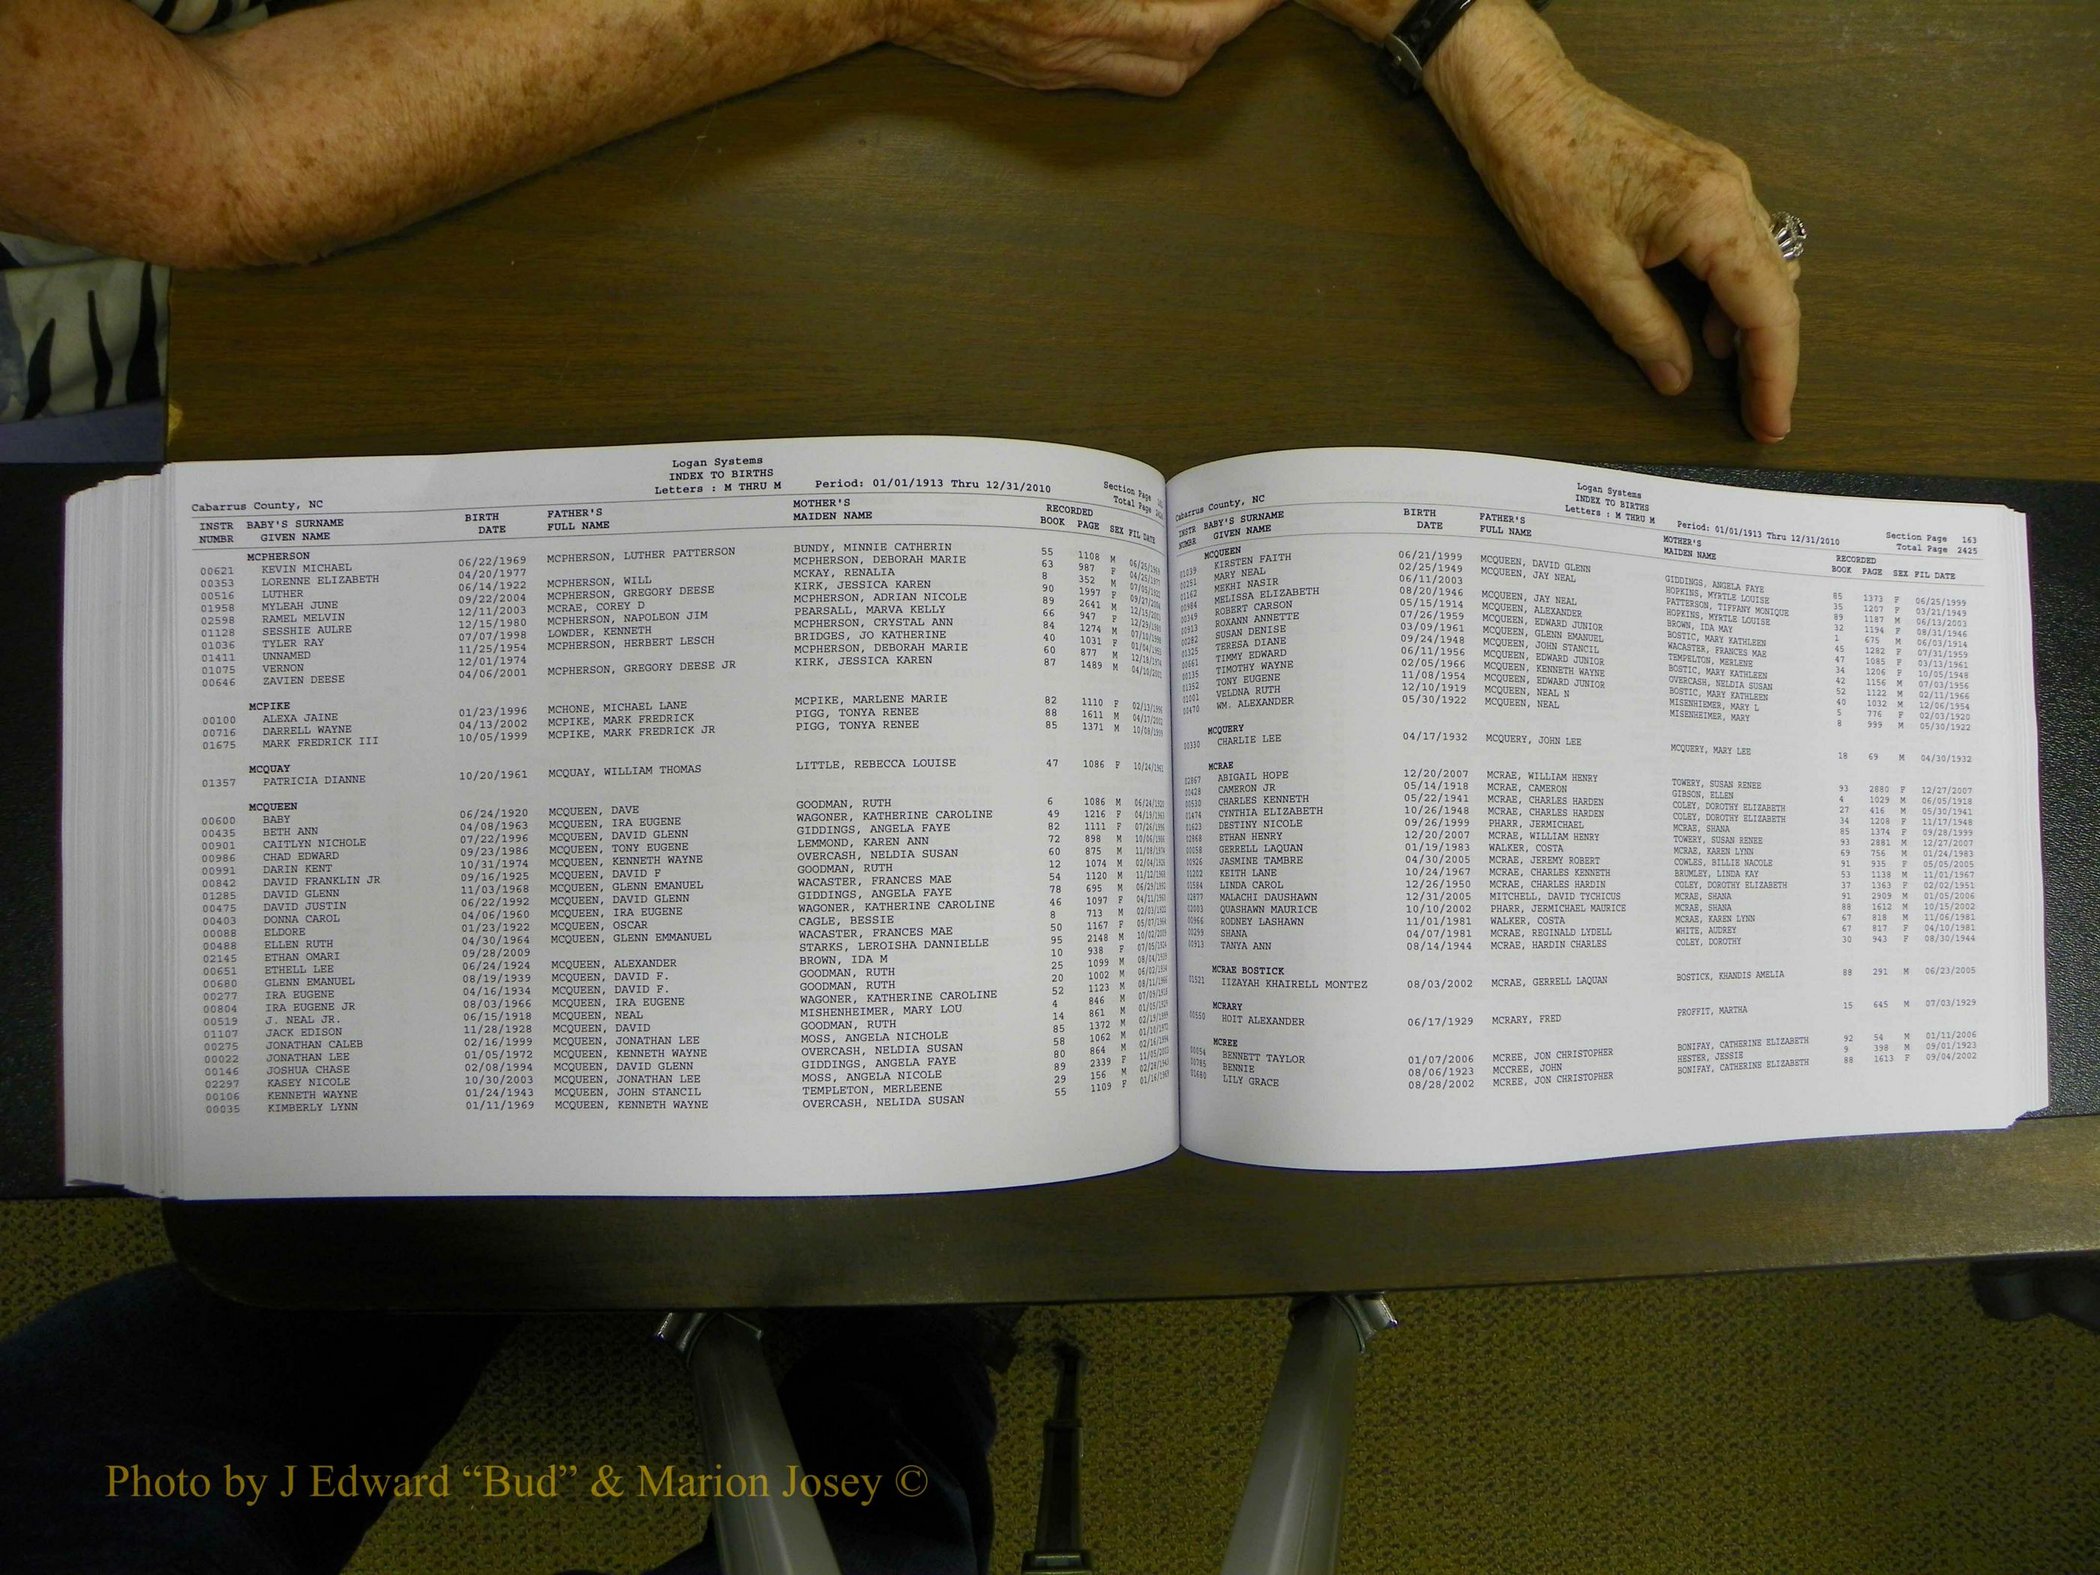 Logan Systems
INDEX TO BIRTHS
Letters : M THRU M Period: 01/01/1913 Thru 12/31/2010
Section Page
Total Page
Cabarrus County, NC
INSTR BABY'S SURNAME BIRTH FATHER'S MOTHER'S RECORDED
NUMBR GIVEN NAME DATE FULL NAME MAIDEN NAME BOOK PAGE SEX FIL DATE
MCPHERSON
00621 KEVIN MICHAEL 06/22/1969 MCPHERSON, LUTHER PATTERSON BUNDY, MINNIE CATHERIN 55 1108 M 06/25/1969
00353 LORENNE ELIZABETH 04/20/1977 MCPHERSON, DEBORAH MARIE 63 987 F 04/25/1977
00516 LUTHER 06/14/1922 MCPHERSON, WILL MCKAY, RENALIA 8 352 M
01958 MYLEAH JUNE 09/22/2004 MCPHERSON, GREGORY DEESE KIRK, JESSICA KAREN 90 1997 F 09/27/2004
02598 RAMEL MELVIN 12/11/2003 MCRAE, COREY D MCPHERSON, ADRIAN NICOLE 89 2641 M
01128 SESSHIE AULRE 12/15/1980 MCPHERSON, NAPOLEON JIM PEARSALL, MARVA KELLY 66 947 F
01036 TYLER RAY 07/07/1998 LOWDER, KENNETH MCPHERSON, CRYSTAL ANN 84 1274 M
01411 UNNAMED 11/25/1954 MCPHERSON, HERBERT LESCH BRIDGES, JO KATHERINE 40 1031 F
01075 VERNON 12/01/1974 MCPHERSON, DEBORAH MARIE 60 877 M 12/18/1974
00646 ZAVIEN DEESE 04/06/2001 MCPHERSON, GREGORY DEESE JR KIRK, JESSICA KAREN 87 1489 M 04/10/2001
MCPIKE
00100 ALEXA JAINE 01/23/1996 MCHONE, MICHAEL LANE MCPIKE, MARLENE MARIE 82 1110 F 02/13/1996
00716 DARRELL WAYNE 04/13/2002 MCPIKE, MARK FREDRICK PIGG, TONYA RENEE 88 1611 M 04/17/2002
01675 MARK FREDRICK III 10/05/1999 MCPIKE, MARK FREDRICK JR PIGG, TONYA RENEE 85 1371 M 10/08/1999
MCQUAY
01357 PATRICIA DIANNE 10/20/1961 MCQUAY, WILLIAM THOMAS LITTLE, REBECCA LOUISE 47 1086 F 10/24/1961
MCQUEEN
00600 BABY 06/24/1920 MCQUEEN, DAVE GOODMAN, RUTH 6 1086 M 06/24/1920
00435 BETH ANN 04/08/1963 MCQUEEN, IRA EUGENE WAGONER, KATHERINE CAROLINE 49 1216 F 04/19/1963
00901 CAITLYN NICHOLE 07/22/1996 MCQUEEN, DAVID GLENN GIDDINGS, ANGELA FAYE 82 1111 F 07/26/1996
00986 CHAD EDWARD 09/23/1986 MCQUEEN, TONY EUGENE LEMMOND, KAREN ANN 72 898 M 10/06/1986
00991 DARIN KENT 10/31/1974 MCQUEEN, KENNETH WAYNE OVERCASH, NELDIA SUSAN 60 875 M 11/08/1974
00842 DAVID FRANKLIN JR 09/16/1925 MCQUEEN, DAVID F GOODMAN, RUTH 12 1074 M 02/04/1926
01285 DAVID GLENN 11/03/1968 MCQUEEN, GLENN EMANUEL WACASTER, FRANCES MAE 54 1120 M 11/12/1968
00475 DAVID JUSTIN 06/22/1992 MCQUEEN, DAVID GLENN GIDDINGS, ANGELA FAYE 78 695 M 06/29/1992
00403 DONNA CAROL 04/06/1960 MCQUEEN, IRA EUGENE WAGONER, KATHERINE CAROLINE 46 1097 F
00088 ELDORE 01/23/1922 MCQUEEN, OSCAR CAGLE, BESSIE 8 713 M
00488 ELLEN RUTH 04/30/1964 MCQUEEN, GLENN EMMANUEL WACASTER, FRANCES MAE 50 1167 F
02145 ETHAN OMARI 09/28/2009 STARKS, LEROISHA DANNIELLE 95 2148 M 10/02/2009
00651 ETHELL LEE 06/24/1924 MCQUEEN, ALEXANDER BROWN, IDA M 10 938 F
00680 GLENN EMANUEL 08/19/1939 MCQUEEN, DAVID F. GOODMAN, RUTH 25 1099 M
00277 IRA EUGENE 04/16/1934 MCQUEEN, DAVID F. GOODMAN, RUTH 20 1002 M
00804 IRA EUGENE JR 08/03/1966 MCQUEEN, IRA EUGENE WAGONER, KATHERINE CAROLINE 52 1123 M
00519 J. NEAL JR. 06/15/1918 MCQUEEN, NEAL MISHENHEIMER, MARY LOU 4 846 M
01107 JACK EDISON 11/28/1928 MCQUEEN, DAVID GOODMAN, RUTH 14 861 M
00275 JONATHAN CALEB 02/16/1999 MCQUEEN, JONATHAN LEE MOSS, ANGELA NICHOLE 85 1372 M
00022 JONATHAN LEE 01/05/1972 MCQUEEN, KENNETH WAYNE OVERCASH, NELDIA SUSAN 58 1062 M
00146 JOSHUA CHASE 02/08/1994 MCQUEEN, DAVID GLENN GIDDINGS, ANGELA FAYE 80 864 M
02297 KASEY NICOLE 10/30/2003 MCQUEEN, JONATHAN LEE MOSS, ANGELA NICOLE 89 2339 F
00106 KENNETH WAYNE 01/24/1943 MCQUEEN, JOHN STANCIL TEMPLETON, MERLEENE 29 156 M
00035 KIMBERLY LYNN 01/11/1969 MCQUEEN, KENNETH WAYNE OVERCASH, NELIDA SUSAN 55 1109 F 01/16/1969
Logan Systems
INDEX TO BIRTHS
Letters : M THRU M Period: 01/01/1913 Thru 12/31/2010
Section Page 163
Total Page 2425
Cabarrus County, NC
INSTR BABY'S SURNAME BIRTH FATHER'S MOTHER'S RECORDED
NUMBR GIVEN NAME DATE FULL NAME MAIDEN NAME BOOK PAGE SEX FIL DATE
MCQUEEN
01039 KIRSTEN FAITH 06/21/1999 MCQUEEN, DAVID GLENN GIDDINGS, ANGELA FAYE 85 1373 F 06/25/1999
00251 MARY NEAL 02/25/1949 MCQUEEN, JAY NEAL HOPKINS, MYRTLE LOUISE 35 1207 F 03/21/1949
01162 MEKHI NASIR 06/11/2003 PATTERSON, TIFFANY MONIQUE 89 1187 M 06/13/2003
00984 MELISSA ELIZABETH 08/20/1946 MCQUEEN, JAY NEAL HOPKINS, MYRTLE LOUISE 32 1194 F 08/31/1946
00349 ROBERT CARSON 05/15/1914 MCQUEEN, ALEXANDER BROWN, IDA MAY 1 675 M 06/03/1914
00913 ROXANN ANNETTE 07/26/1959 MCQUEEN, EDWARD JUNIOR BOSTIC, MARY KATHLEEN 45 1282 F 07/31/1959
00282 SUSAN DENISE 03/09/1961 MCQUEEN, GLENN EMANUEL WACASTER, FRANCES MAE 47 1085 F 03/13/1961
01325 TERESA DIANE 09/24/1948 MCQUEEN, JOHN STANCIL TEMPELTON, MERLENE 34 1206 F 10/05/1948
00661 TIMMY EDWARD 06/11/1956 MCQUEEN, EDWARD JUNIOR BOSTIC, MARY KATHLEEN 42 1156 M 07/03/1956
00135 TIMOTHY WAYNE 02/05/1966 MCQUEEN, KENNETH WAYNE OVERCASH, NELDIA SUSAN 52 1122 M 02/11/1966
01352 TONY EUGENE 11/08/1954 MCQUEEN, EDWARD JUNIOR BOSTIC, MARY KATHLEEN 40 1032 M 12/06/1954
01001 VELDNA RUTH 12/10/1919 MCQUEEN, NEAL N MISENHIEMER, MARY L 5 776 F 02/03/1920
00470 WM. ALEXANDER 05/30/1922 MCQUEEN, NEAL MISENHEIMER, MARY 8 999 M 05/30/1922
MCQUERY
00330 CHARLIE LEE 04/17/1932 MCQUERY, JOHN LEE MCQUERY, MARY LEE 18 69 M 04/30/1932
MCRAE
02867 ABIGAIL HOPE 12/20/2007 MCRAE, WILLIAM HENRY TOWERY, SUSAN RENEE 93 2880 F 12/27/2007
00428 CAMERON JR 05/14/1918 MCRAE, CAMERON GIBSON, ELLEN 4 1029 M 06/05/1918
00530 CHARLES KENNETH 05/22/1941 MCRAE, CHARLES HARDEN COLEY, DOROTHY ELIZABETH 27 416 M 05/30/1941
01474 CYNTHIA ELIZABETH 10/26/1948 MCRAE, CHARLES HARDEN COLEY, DOROTHY ELIZABETH 34 1208 F 11/17/1948
01623 DESTINY NICOLE 09/26/1999 PHARR, JERMICHAEL MCRAE, SHANA 85 1374 F 09/28/1999
02868 ETHAN HENRY 12/20/2007 MCRAE, WILLIAM HENRY TOWERY, SUSAN RENEE 93 2881 M 12/27/2007
00058 GERRELL LAQUAN 01/19/1983 WALKER, COSTA MCRAE, KAREN LYNN 69 756 M 01/24/1983
00926 JASMINE TAMBRE 04/30/2005 MCRAE, JEREMY ROBERT COWLES, BILLIE NACOLE 91 935 F 05/05/2005
01202 KEITH LANE 10/24/1967 MCRAE, CHARLES KENNETH BRUMLEY, LINDA KAY 53 1138 M 11/01/1967
01584 LINDA CAROL 12/26/1950 MCRAE, CHARLES HARDIN COLEY, DOROTHY ELIZABETH 37 1363 F 02/02/1951
02877 MALACHI DAUSHAWN 12/31/2005 MITCHELL, DAVID TYCHICUS MCRAE, SHANA 91 2909 M 01/05/2006
02003 QUASHAWN MAURICE 10/10/2002 PHARR, JERMICHAEL MAURICE MCRAE, SHANA 88 1612 M 10/15/2002
00966 RODNEY LASHAWN 11/01/1981 WALKER, COSTA MCRAE, KAREN LYNN 67 818 M 11/06/1981
00299 SHANA 04/07/1981 MCRAE, REGINALD LYDELL WHITE, AUDREY 67 817 F 04/10/1981
00913 TANYA ANN 08/14/1944 MCRAE, HARDIN CHARLES COLEY, DOROTHY 30 943 F 08/30/1944
MCRAE BOSTICK
01521 IIZAYAH KHAIRELL MONTEZ 08/03/2002 MCRAE, GERRELL LAQUAN BOSTICK, KHANDIS AMELIA 88 291 M 06/23/2005
MCRARY
00550 HOIT ALEXANDER 06/17/1929 MCRARY, FRED PROFFIT, MARTHA 15 645 M 07/03/1929
MCREE
00054 BENNETT TAYLOR 01/07/2006 MCREE, JON CHRISTOPHER BONIFAY, CATHERINE ELIZABETH 92 54 M 01/11/2006
00785 BENNIE 08/06/1923 MCCREE, JOHN HESTER, JESSIE 9 398 M 09/01/1923
01680 LILY GRACE 08/28/2002 MCREE, JON CHRISTOPHER BONIFAY, CATHERINE ELIZABETH 88 1613 F 09/04/2002
Photo by J Edward “Bud” & Marion Josey ©